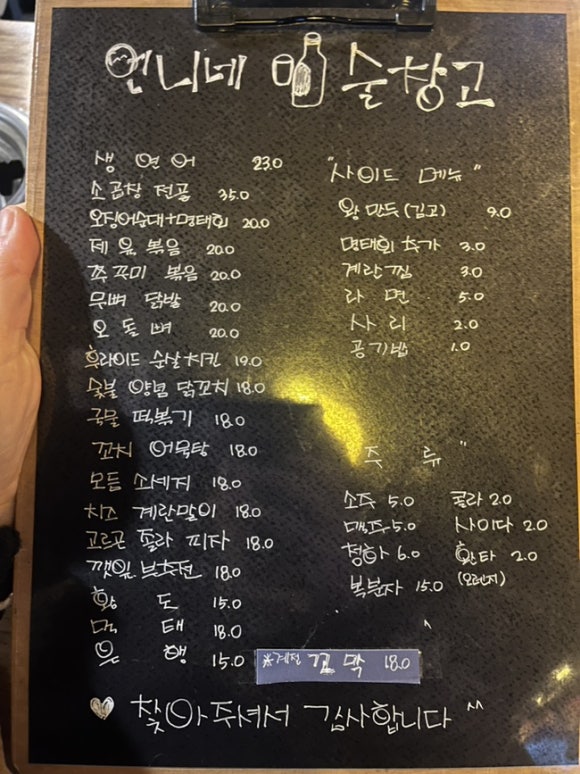 언니네 술창고
생 연어 23.0
소곱창 전골 35.0
오징어순대+명태회 20.0
제육볶음 20.0
쭈꾸미 볶음 20.0
무뼈 닭발 20.0
오돌뼈 20.0
후라이드 순살치킨 19.0
숯불 양념 닭꼬치 18.0
국물 떡볶기 18.0
꼬치 어묵탕 18.0
모듬 소세지 18.0
치즈 계란말이 18.0
고르곤 졸라 피자 18.0
깻잎 부추전 18.0
황도 15.0
먹태 18.0
은행 15.0
"사이드 메뉴"
왕만두(김고) 9.0
명태회 추가 3.0
계란찜 3.0
라면 5.0
사리 2.0
공기밥 1.0
주류"
소주 5.0 콜라 2.0
맥주 5.0 사이다 2.0
청하 6.0 환타 2.0
복분자 15.0 (오렌지)
*계절 꼬막 18.0
♡ 찾아주셔서 감사합니다 ^^